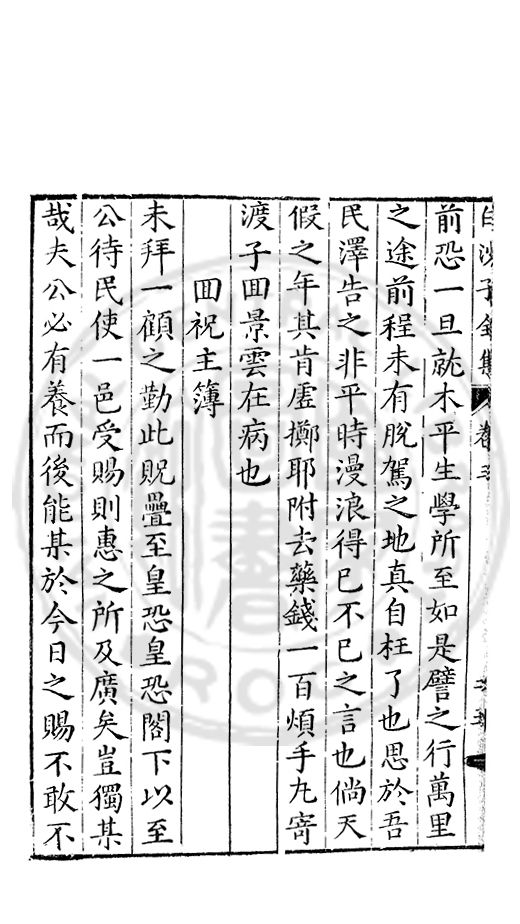 白沙子全集 卷之
前恐一旦就木平生學所至如是譬之行萬里
之途前程未有脫駕之地真自枉了也思於吾
民澤告之非平時漫浪得已不已之言也倘天
假之年其肯虛擲耶附去藥錢一百煩手丸寄
渡子囬景雲在病也
囬祝主簿
未拜一顧之勤此貺疊至皇恐皇恐閣下以至
公待民使一邑受賜則惠之所及廣矣豈獨某
哉夫公必有養而後能某於今日之賜不敢不